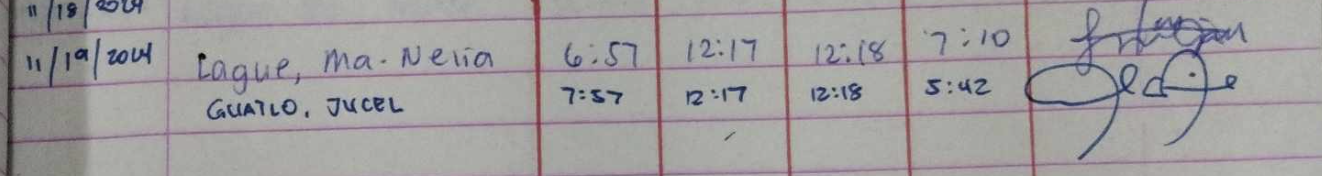 11/18/2024
11/19/2024 Lague, Ma. Nelia 6:57 12:17 12:18 7:10
GUATLO, JUCEL 7:57 12:17 12:18 5:42